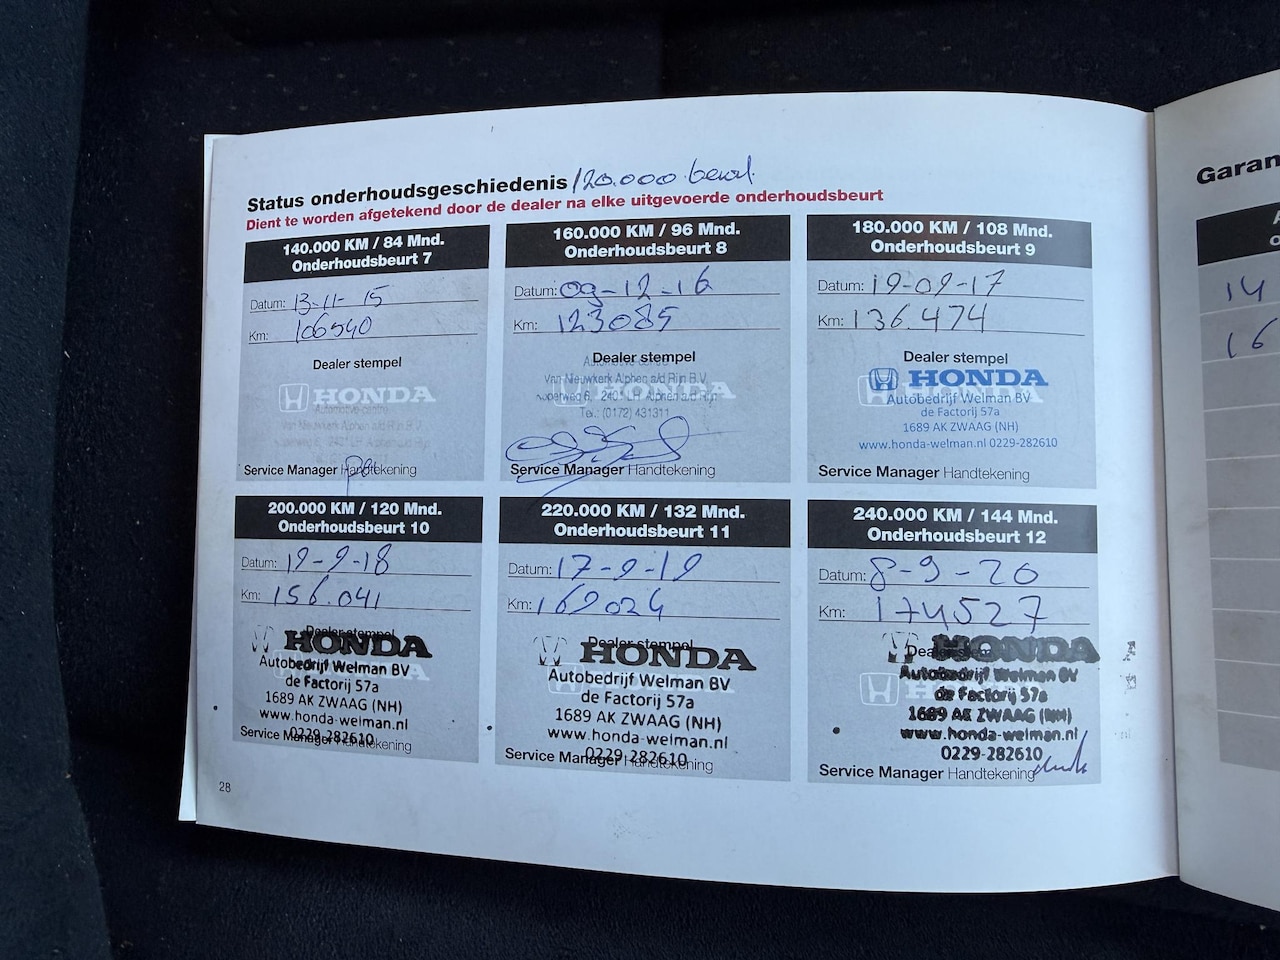 Status onderhoudsgeschiedenis 120.000 beurt
Dient te worden afgetekend door de dealer na elke uitgevoerde onderhoudsbeurt
140.000 KM / 84 Mnd.
Onderhoudsbeurt 7
Datum: 13-11-15
Km: 106540
Dealer stempel
HONDA
Automotive centre
Van Nieuwkerk Alphen a/d Rijn B.V.
Service Manager Handtekening
160.000 KM / 96 Mnd.
Onderhoudsbeurt 8
Datum: 09-12-16
Km: 123085
Dealer stempel
HONDA
Van Nieuwkerk Alphen a/d Rijn B.V.
Tel.: (0172) 431311
Service Manager Handtekening
180.000 KM / 108 Mnd.
Onderhoudsbeurt 9
Datum: 19-09-17
Km: 136.474
Dealer stempel
HONDA
Autobedrijf Welman BV
de Factorij 57a
1689 AK ZWAAG (NH)
www.honda-welman.nl 0229-282610
Service Manager Handtekening
200.000 KM / 120 Mnd.
Onderhoudsbeurt 10
Datum: 19-9-18
Km: 156.041
Dealer stempel
HONDA
Autobedrijf Welman BV
de Factorij 57a
1689 AK ZWAAG (NH)
www.honda-welman.nl
0229-282610
Service Manager Handtekening
220.000 KM / 132 Mnd.
Onderhoudsbeurt 11
Datum: 17-9-19
Km: 169024
Dealer stempel
HONDA
Autobedrijf Welman BV
de Factorij 57a
1689 AK ZWAAG (NH)
www.honda-welman.nl
0229-282610
Service Manager Handtekening
240.000 KM / 144 Mnd.
Onderhoudsbeurt 12
Datum: 8-9-20
Km: 174527
HONDA
Autobedrijf Welman BV
de Factorij 57a
1689 AK ZWAAG (NH)
www.honda-welman.nl
0229-282610
Service Manager Handtekening
28
Garan
14
16